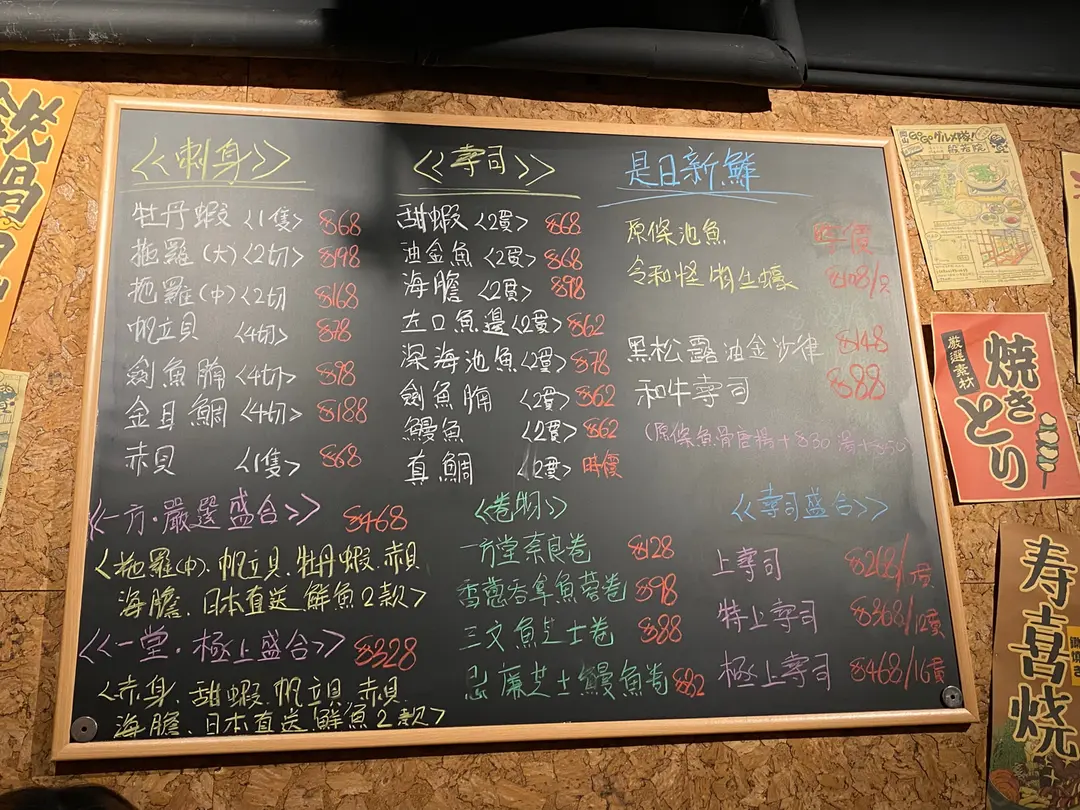 <<刺身>>
牡丹蝦 <1隻> $68
拖羅(大) <2切> $198
拖羅(中) <2切 $168
帆立貝 <4切> $78
劍魚腩 <4切> $98
金目鯛 <4切> $188
赤貝 <1隻> $68
<<壽司>>
甜蝦 <2貫> $68
油金魚 <2貫> $68
海膽 <2貫> $98
左口魚邊 <2貫> $62
深海池魚 <2貫> $78
劍魚腩 <2貫> $62
鰻魚 <2貫> $62
真鯛 <2貫> 時價
是日新鮮
原條池魚 時價
令和怪物生蠔 $108/只
黑松露油金沙律 $148
和牛壽司 $88
(原條魚骨唐揚+$30 湯+$50
<<一方·嚴選盛合>> $468
<拖羅(中)、帆立貝、牡丹蝦、赤貝
海膽、日本直送 鮮魚2款>
<<一堂·極上盛合>> $328
<赤身、甜蝦、帆立貝、赤貝
海膽、日本直送 鮮魚2款>
<卷物>
一方堂奈良卷 $128
香蔥吞拿魚蓉卷 $98
三文魚芝士卷 $88
忌廉芝士鰻魚卷 $82
<<壽司盛合>>
上壽司 $268/貫
特上壽司 $368/12貫
極上壽司 $468/16貫
鉄鍋
グルメ隊!
焼きとり
厳選素材
寿喜焼